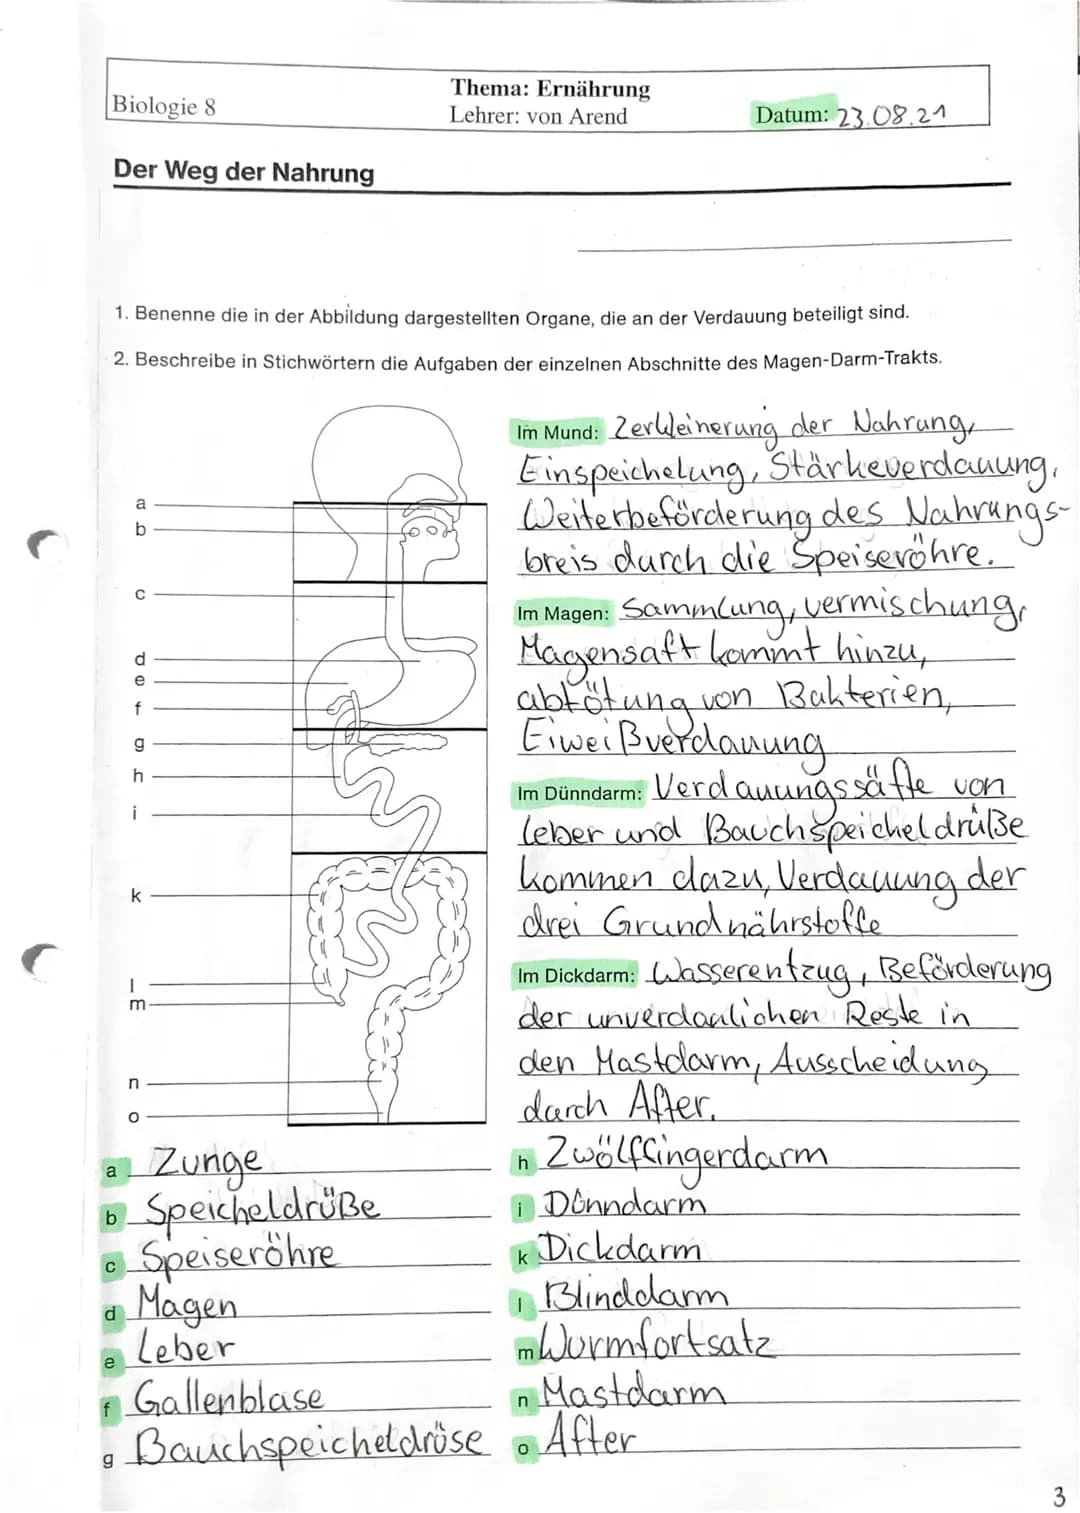 Biologie 8
Thema: Ernährung
Lehrer: von Arend
Datum: 23.08.21
Der Weg der Nahrung
1. Benenne die in der Abbildung dargestellten Organe, die an der Verdauung beteiligt sind.
2. Beschreibe in Stichwörtern die Aufgaben der einzelnen Abschnitte des Magen-Darm-Trakts.
a
b
c
d
e
f
g
h
i
k
l
m
n
o
Im Mund: Zerkleinerung der Nahrung,
Einspeichelung, Stärkeverdauung,
Weiterbeförderung des Nahrungs-
breis durch die Speiseröhre.
Im Magen: Sammlung, vermischung,
Magensaft kommt hinzu,
abtötung von Bakterien,
Eiweißverdauung
Im Dünndarm: Verdauungssäfte von
Leber und Bauchspeicheldrüße
kommen dazu, Verdauung der
drei Grundnährstoffe
Im Dickdarm: Wasserentzug, Beförderung
der unverdaulichen Reste in
den Mastdarm, Ausscheidung
durch After.
a Zunge
b Speicheldrüße
c Speiseröhre
d Magen
e Leber
f Gallenblase
g Bauchspeicheldrüse
h Zwölffingerdarm
i Dünndarm
k Dickdarm
l Blinddarm
m Wurmfortsatz
n Mastdarm
o After
3